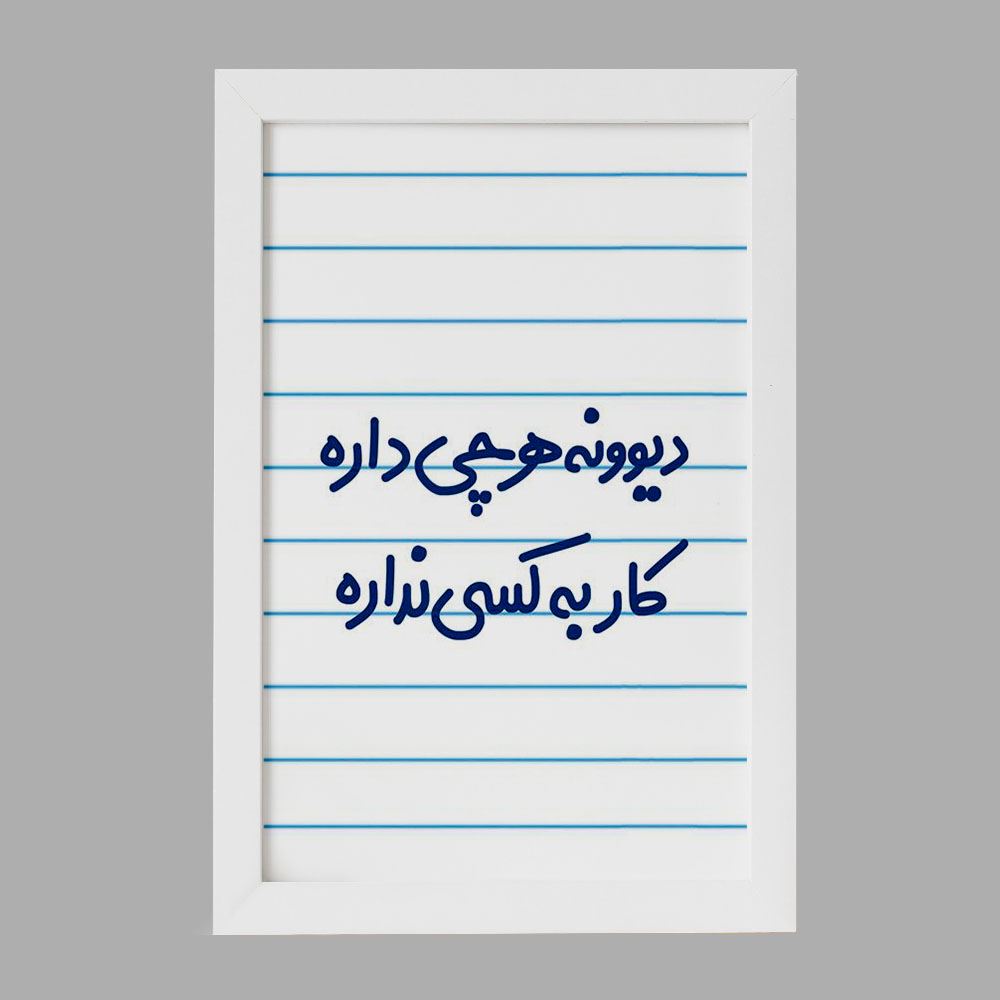 دیوونه هرچی داره
کار به کسی نداره